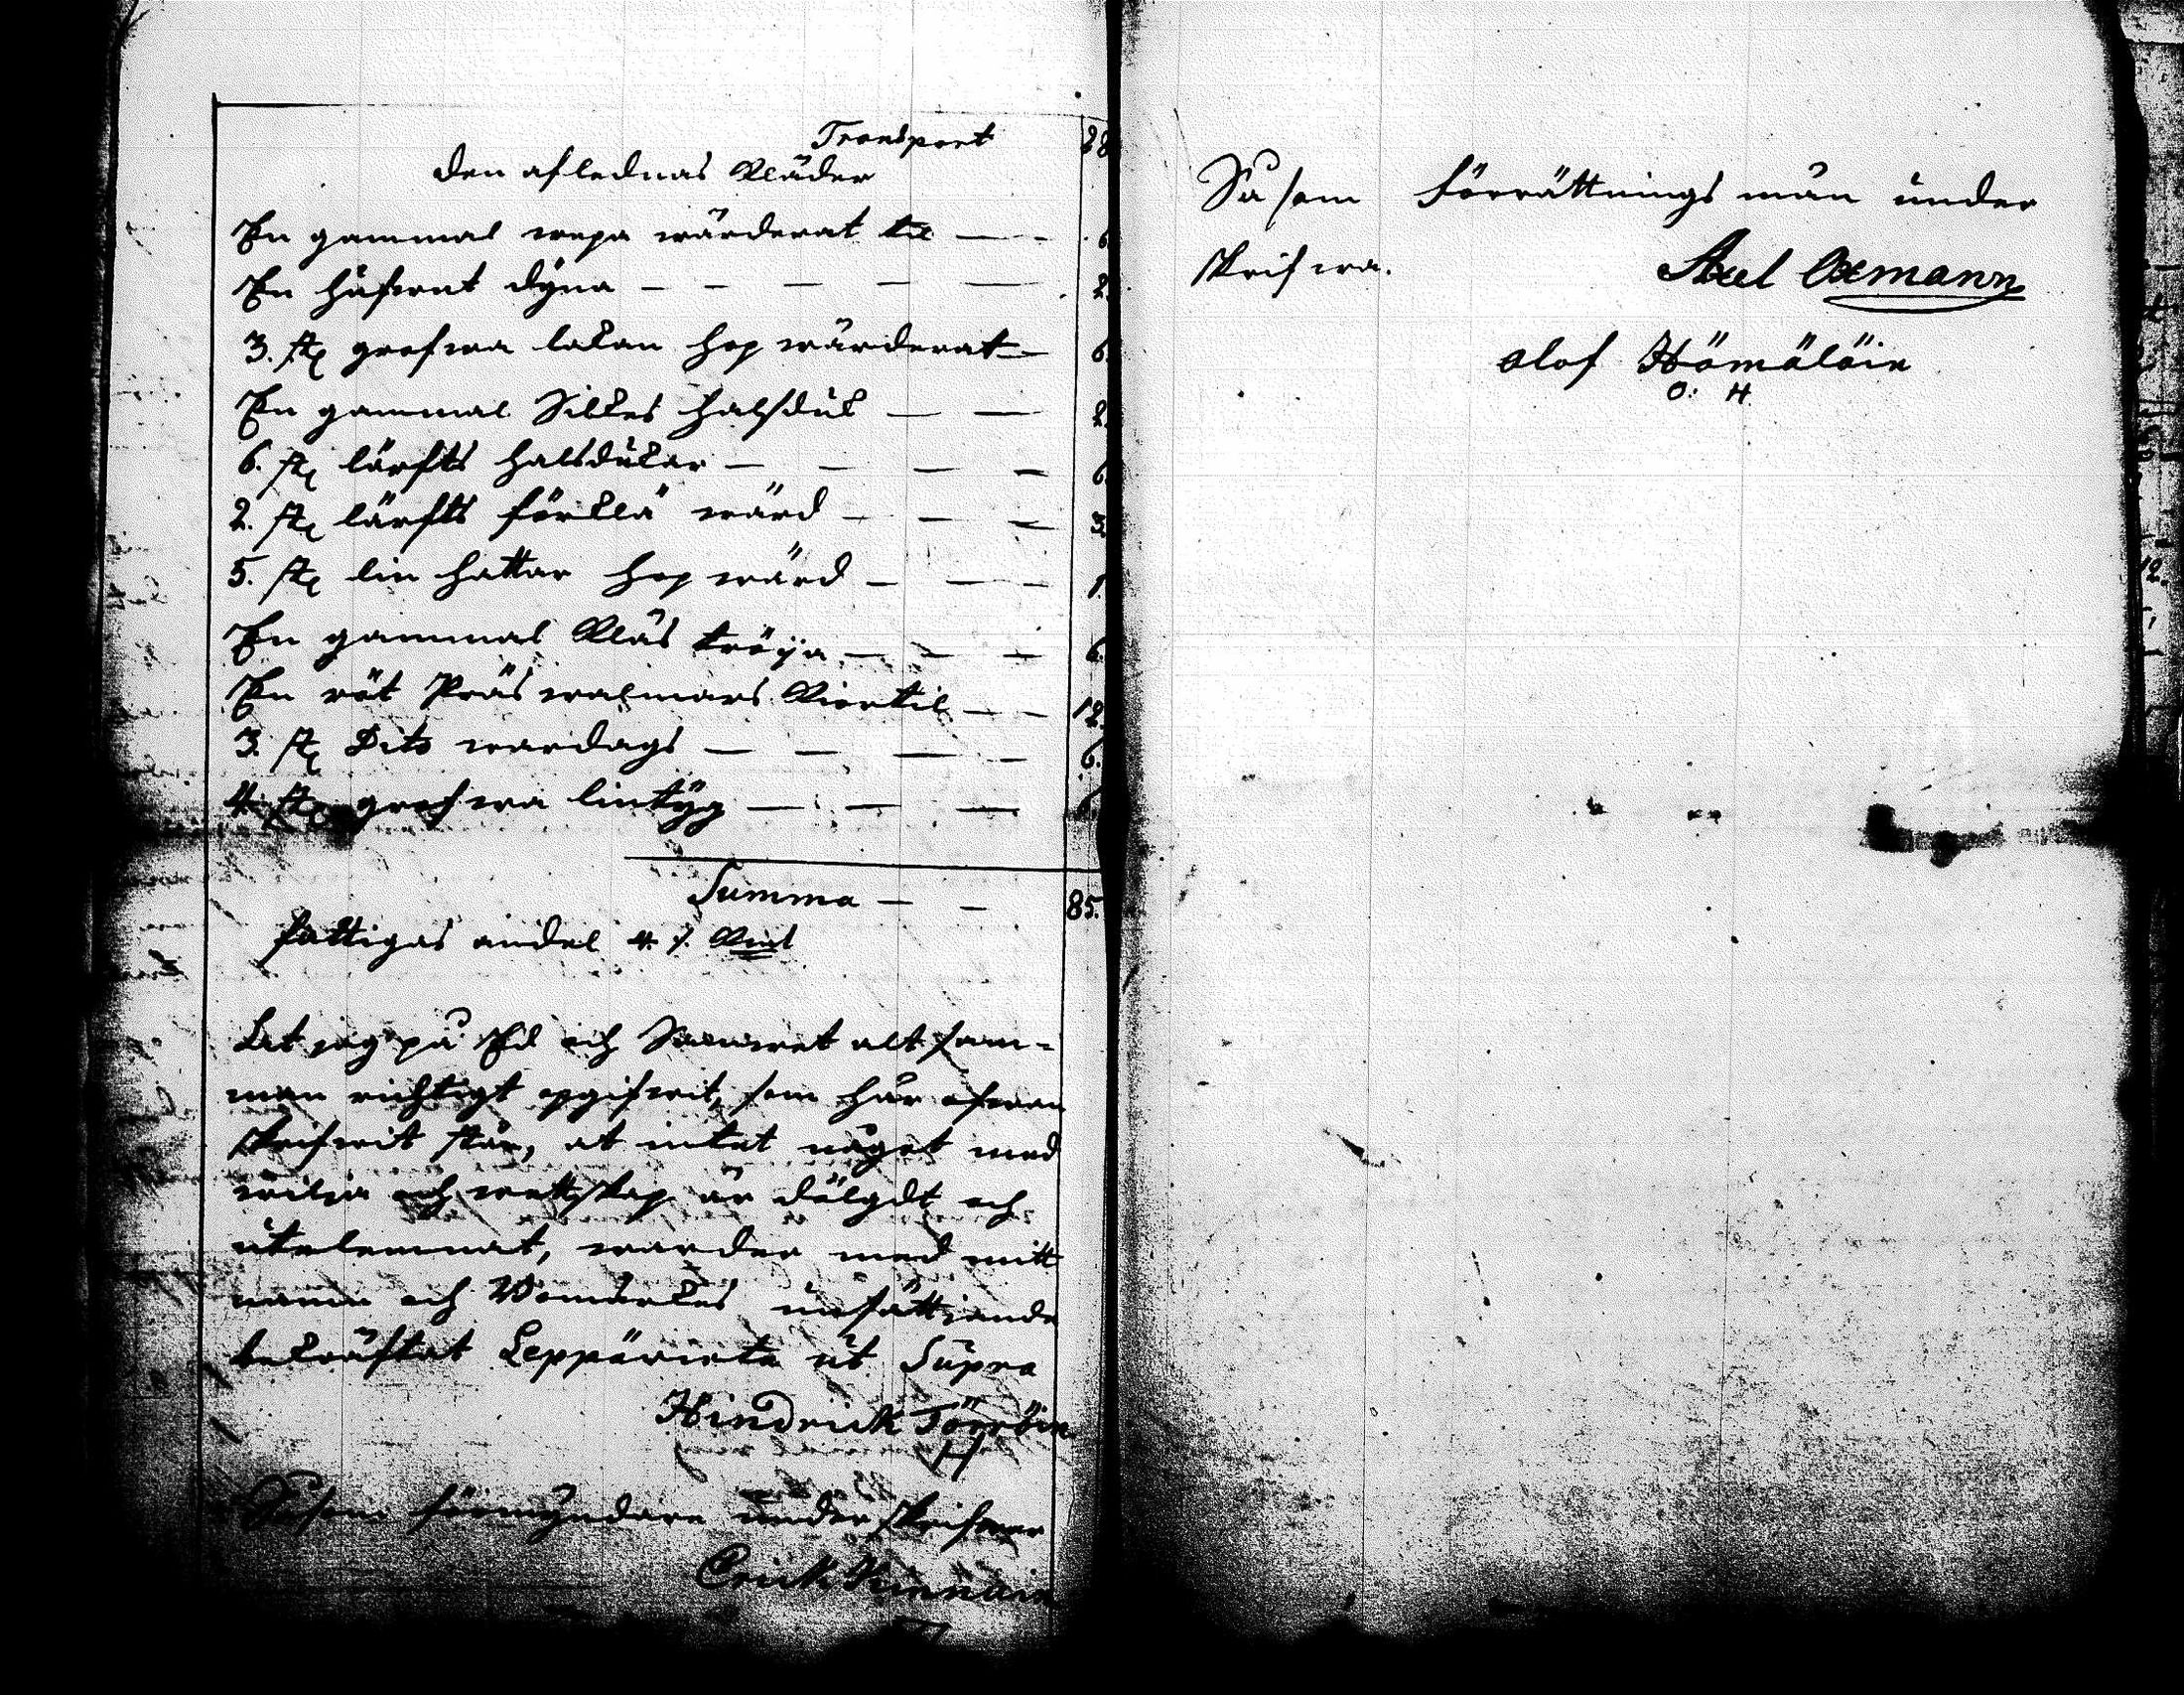 Transport 28
Den aflednas Kläder
En gammal wepa wärderat til — - 6.
En håfwut dÿna — — — — 2.
3. st grofwa lakan hop wärderat — 6
En gammal Silkes halsduk — — 2
6. st lärfts halsdukar — — — — 6
2. st lärfts förklä wärd — — — 3
5. st lin hattar hop wärd — — — 1.
En gammal Kläs tröÿa — — — 6.
En röt Präs walmars Kiortil — — 12.
3. st Dito wardags — — — — 6.
4. st grofwa lintÿg — — — 6
Summa — — 85.
fattigas andel 4
Let jag på Ed och Samwet alt sam-
man richtigt opgifwit, som här ofwan
skrifwit står, at intet något med
wilja och wettskap är dölgdt och
utelemnat, warder med mitt
namn och Bomärkes undsättjande
bekräftat Leppäwirta ut Supra
Hindrick Törröin
H
Såsom förmÿndare underskrifwer
Erick
Såsom förrättnings män under
skrifwa.
Axel Oxmann
Olof Hömäläin
O. H.